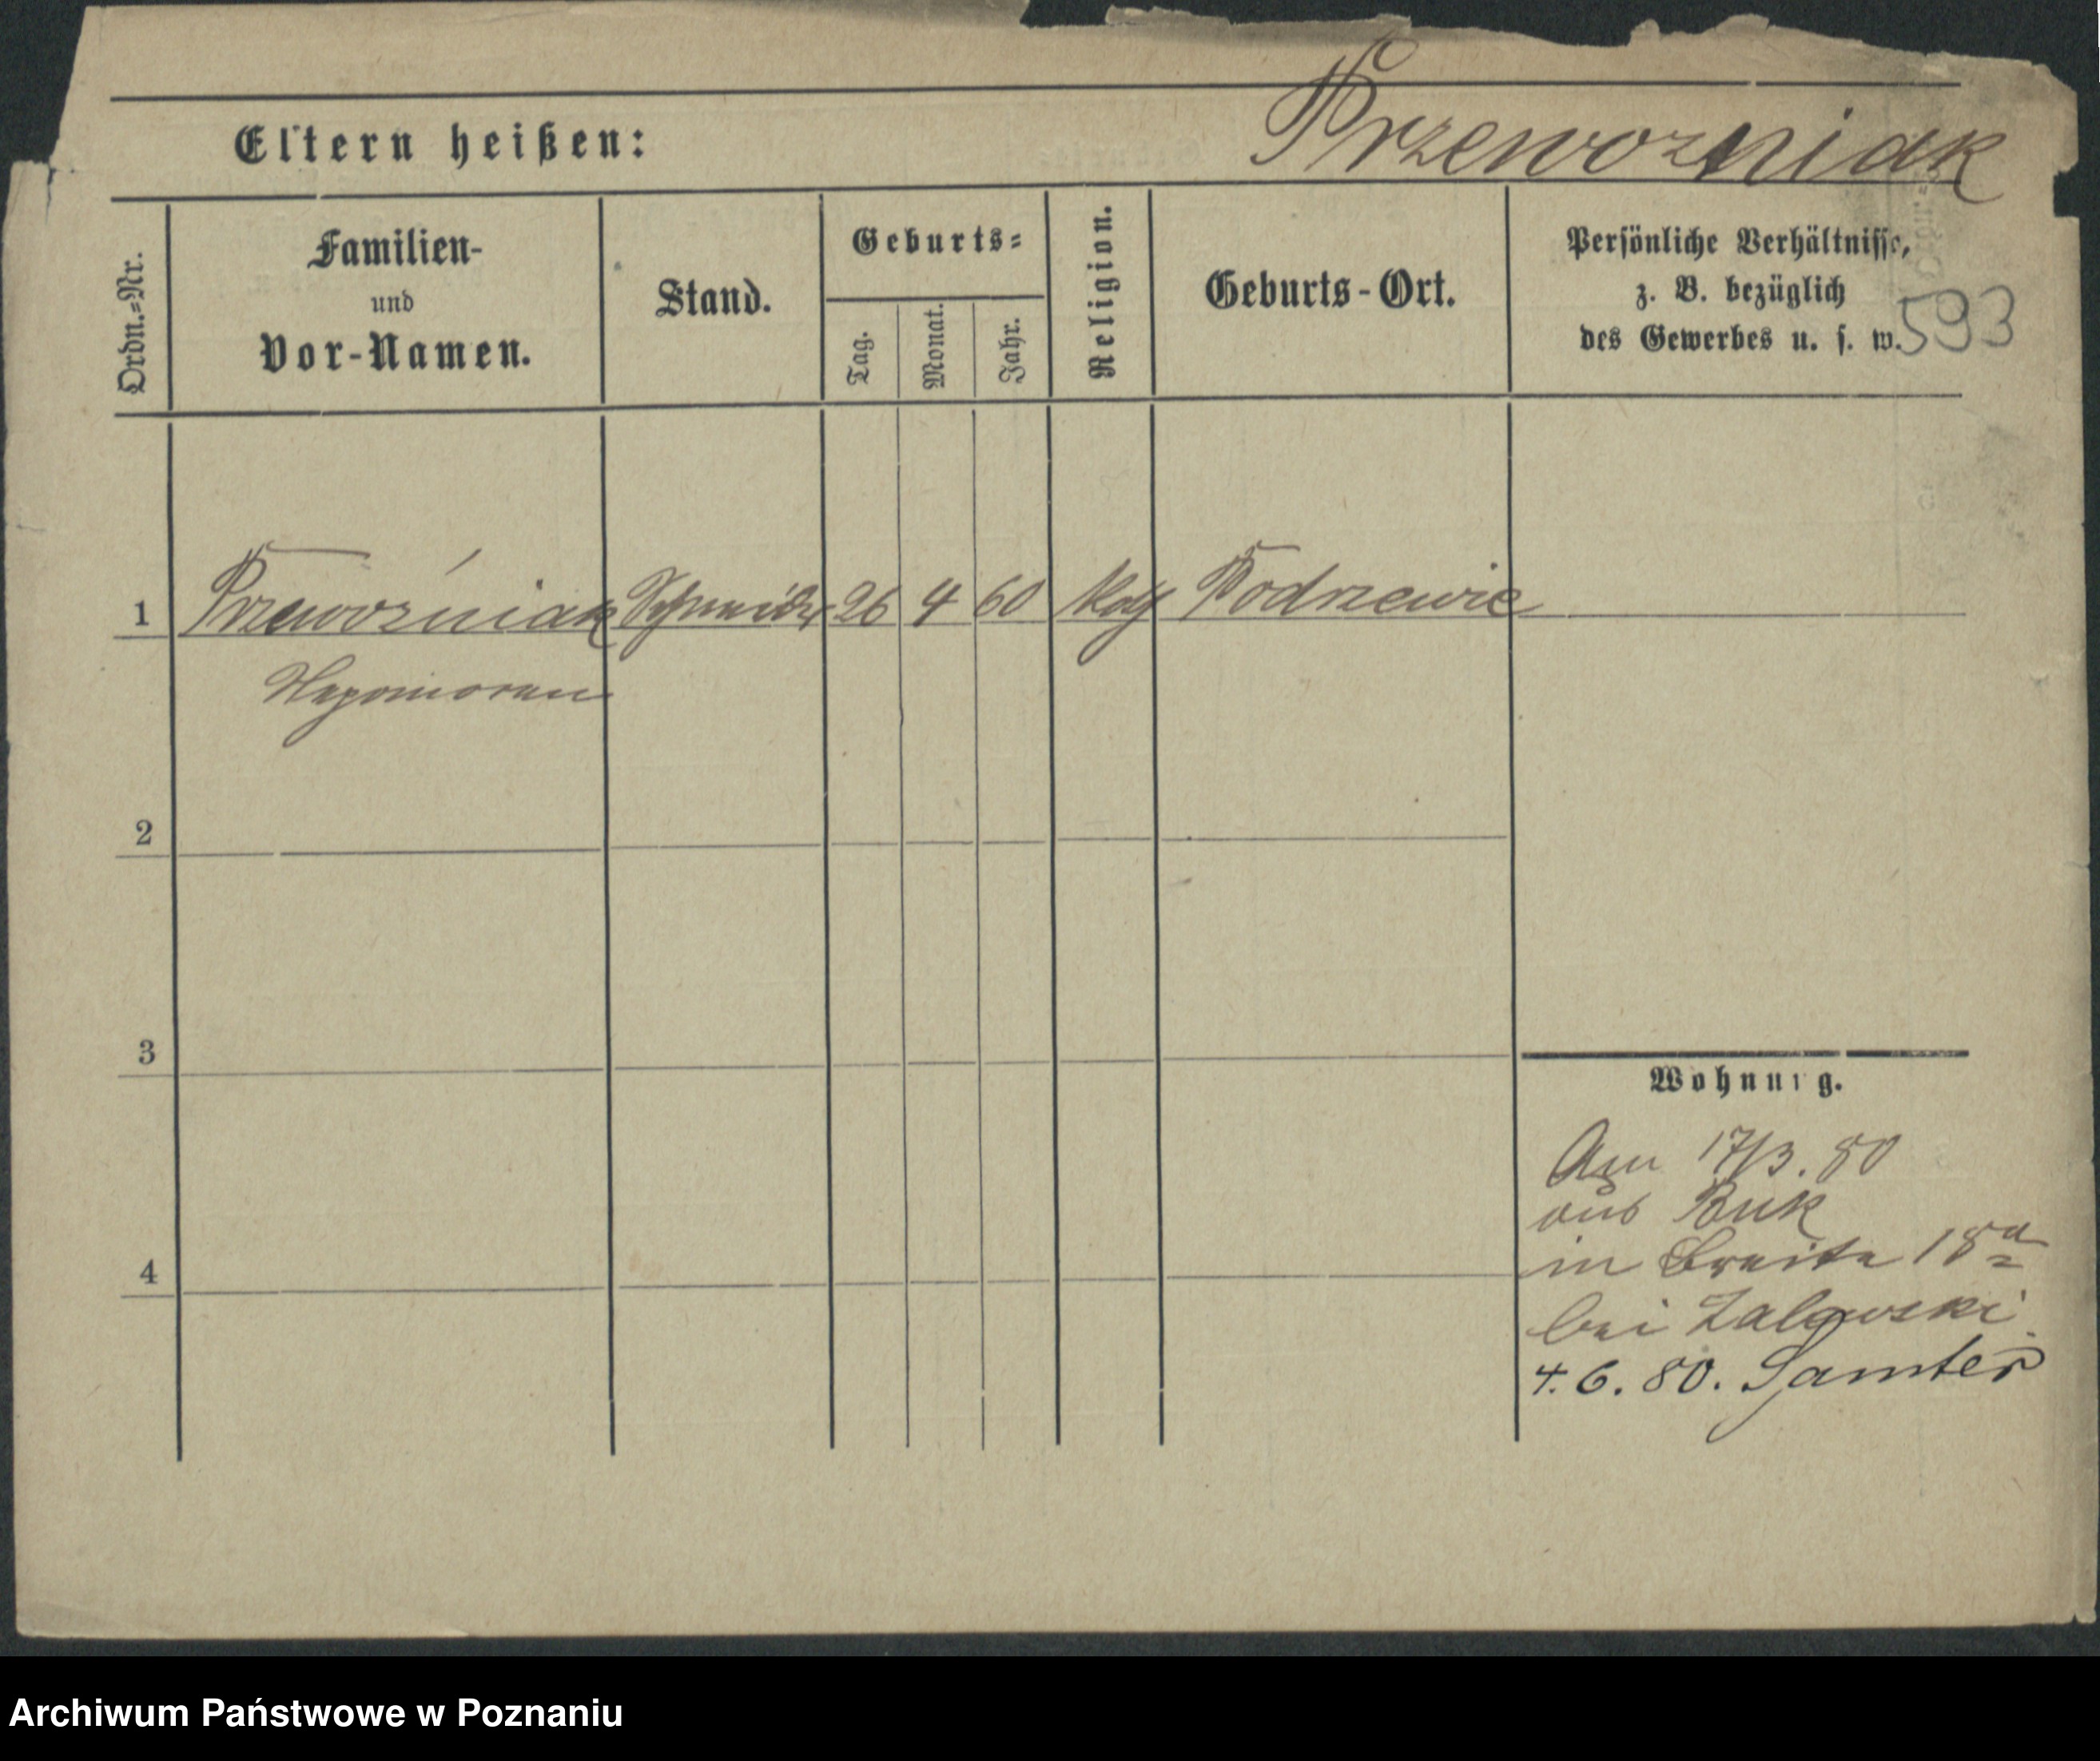 Eltern heißen: Przewozniak
Ordn.=Nr.
Familien-
und
Vor-Namen.
Stand.
Geburts=
Tag.
Monat.
Jahr.
Religion.
Geburts-Ort.
Persönliche Verhältnisse,
z. B. bezüglich
des Gewerbes u. s. w.
593
1 Przewoźniak 26 4 60 Podrzewie
2
3
4
Wohnung.
17/3. 80
aus Buk
in Breite 18a
bei Zalewski
4. 6. 80. Samter
Archiwum Państwowe w Poznaniu